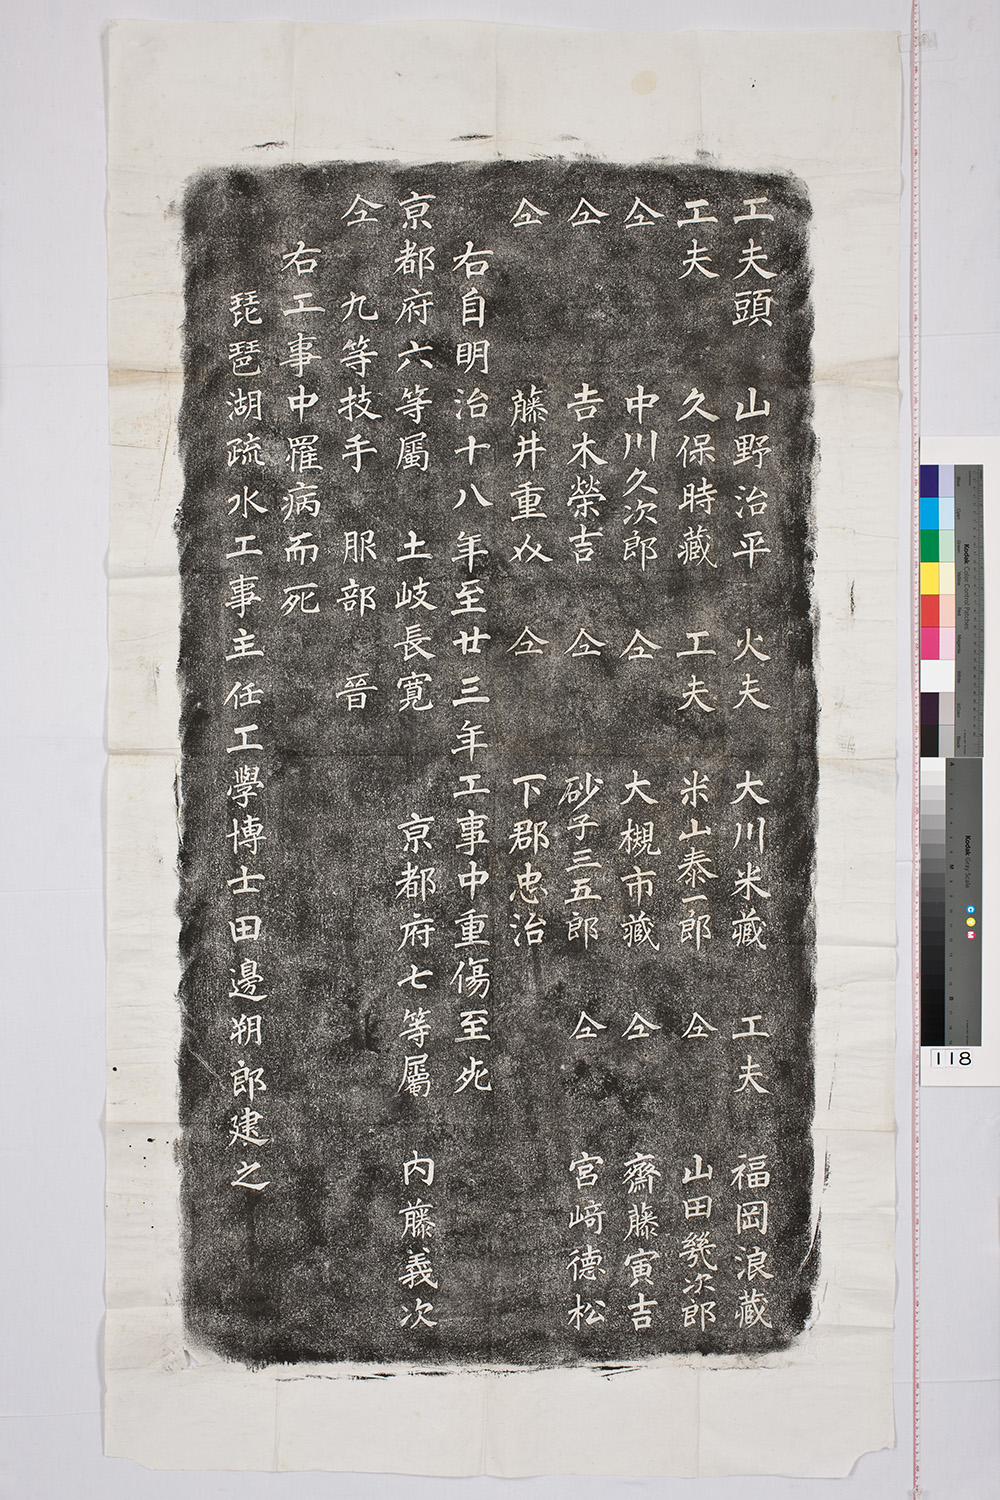 工夫頭 山野治平 火夫 大川米藏 工夫 福岡浪藏
工夫 久保時藏 工夫 米山泰一郎 仝 山田幾次郎
仝 中川久次郎 仝 大槻市藏 仝 齋藤寅吉
仝 吉木榮吉 仝 砂子三五郎 仝 宮﨑德松
仝 藤井重 仝 下郡忠治
右自明治十八年至廿三年工事中重傷至死
京都府六等屬 土岐長寬 京都府七等屬 內藤義次
仝 九等技手 服部晉
右工事中罹病而死
琵琶湖疏水工事主任工學博士田邊朔郎建之
118
Kodak Color Control Patches
Blue Cyan Green Yellow Red Magenta White 3/Color Black
Kodak Gray Scale
C Y M
A M B